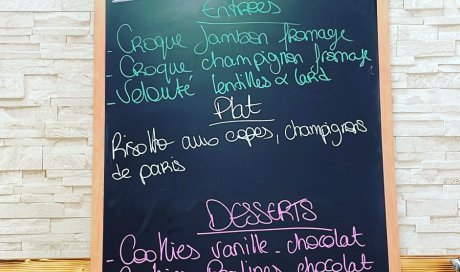 Entrées
- Croque Jambon fromage
- Croque champignon fromage
- Velouté lentilles & lard
Plat
Risotto aux cèpes, champignons
de paris
DESSERTS
- Cookies vanille - chocolat
chocolat